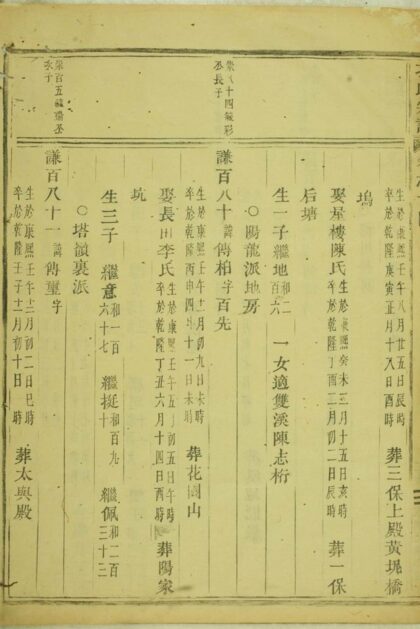 生於康熙壬午八月廿五日辰時
卒於乾隆庚寅正月十八日酉時
葬三保上殿黃坭橋
塢
娶屋樓陳氏
生於康熙癸未三月十五日亥時
卒於乾隆丁酉二月初二日辰時
葬一保
后塘
生一子繼地和二百六
一女適雙溪陳志桁
○陽龍派地房
榮八十四毓彩
公長子
謙百八十諱傳柏字百先
生於康熙壬午十二月初九日未時
卒於乾隆丙申四月十一日未時
葬花園山
娶長田李氏
生於康熙壬午五月初五日午時
卒於乾隆丁丑六月十四日酉時
葬陽家
坑
生三子
繼意和一百六十七
繼挺和百九十
繼佩和二百三十三
○塔領裏派
榮百五毓瑞公
次子
謙百八十一諱傳璽字
生於康熙壬午十二月初二日巳時
卒於乾隆壬子十二月初十日時
葬太與殿